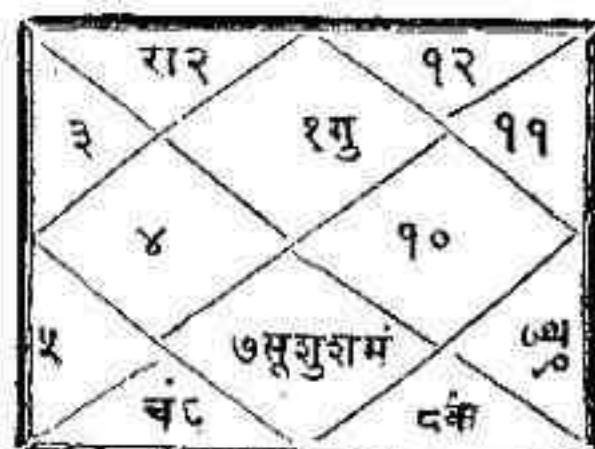 रा२ १२
३ १गु ११
४ १०
५ ७सूशुशमं
चं६ ८के